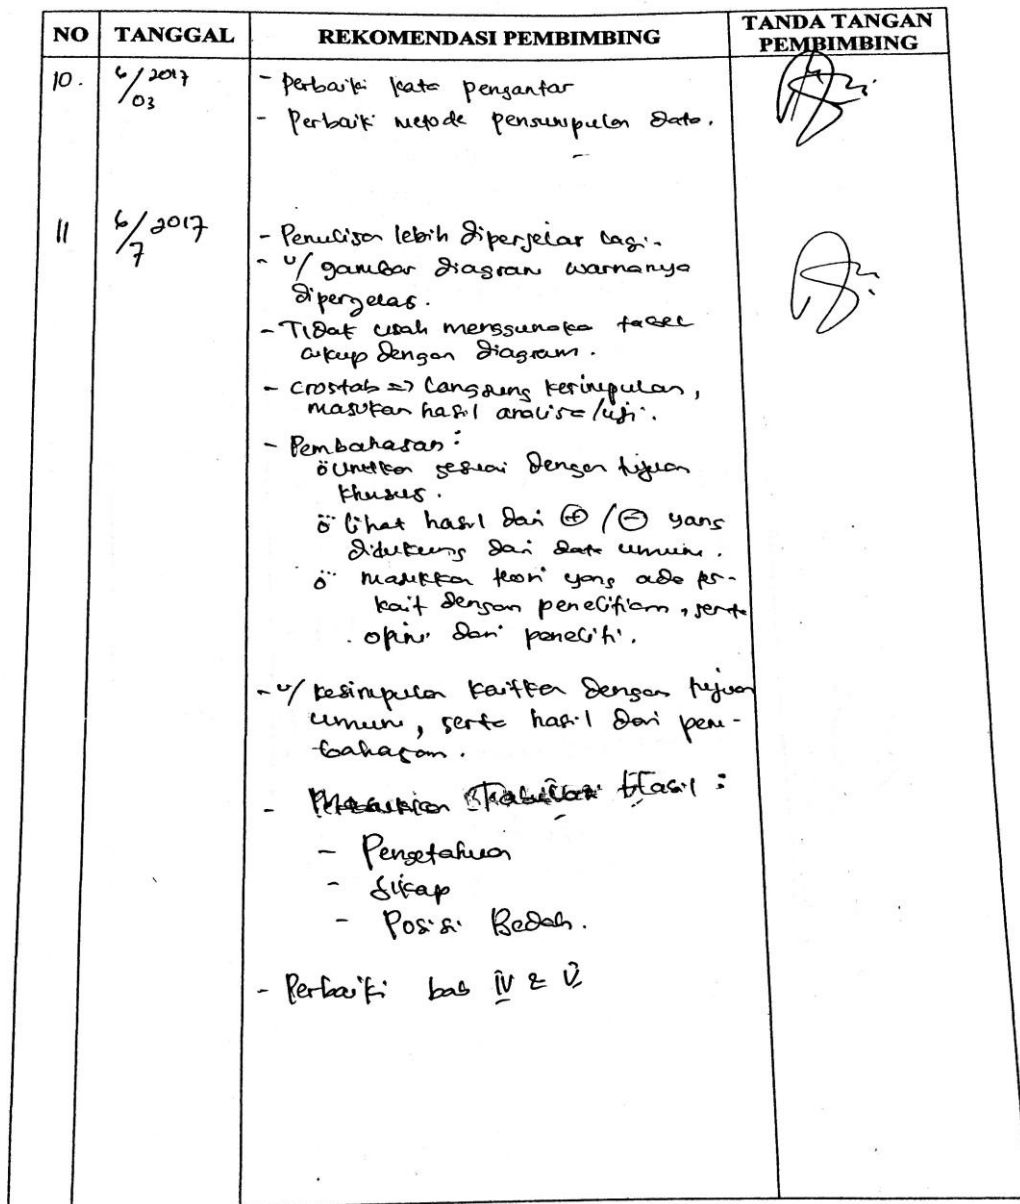 NO TANGGAL REKOMENDASI PEMBIMBING TANDA TANGAN PEMBIMBING
10. 6/2017 03 - Perbaiki kata pengantar
- Perbaiki metode pengumpulan data.
11 6/2017 7 - Penulisan lebih diperjelas lagi.
- u/ gambar diagram warnanya
diperjelas.
- Tidak usah menggunaka tabel
cukup dengan diagram.
- crostab => langsung kesimpulan,
masukan hasil analisa/uji.
- Pembahasan :
sesuai dengan tujuan
khusus.
lihat hasil dari ⊕ / ⊖ yang
didukung dari data umum.
masukkan teori yang ada ter-
kait dengan penelitian, serta
opini dari peneliti.
- u/ kesimpulan kaitkan dengan tujuan
umum, serta hasil dari pem-
bahasan.
- Hasil :
- Pengetahuan
- Sikap
- Posisi Bedah.
- Perbaiki bab IV & V